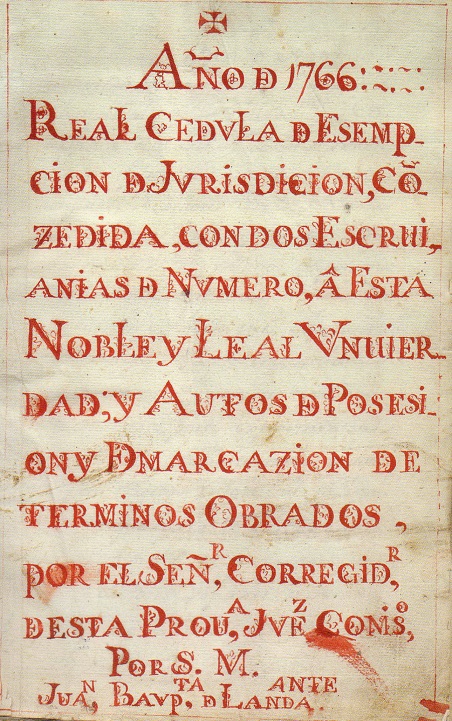 ✠
AÑO D 1766
REAL CEDVLA D ESEMP-
CION D JVRISDICION, CÕ-
ZEDIDA, CON DOS ESCRUI,
ANIAS D NVMERO, Â ESTA
NOBLE Y LEAL VNUIER-
DAD; Y AUTOS D POSESI-
ON Y DMARCAZION DE
TERMINOS OBRADOS,
POR EL SEÑ,ᴿ CORREGID,ᴿ
DESTA PROU,ᴬ JVEᶻ COM̃S,º
POR S. M.
JUAᴺ, BAVP,ᵀᴬ D LANDA. ANTE